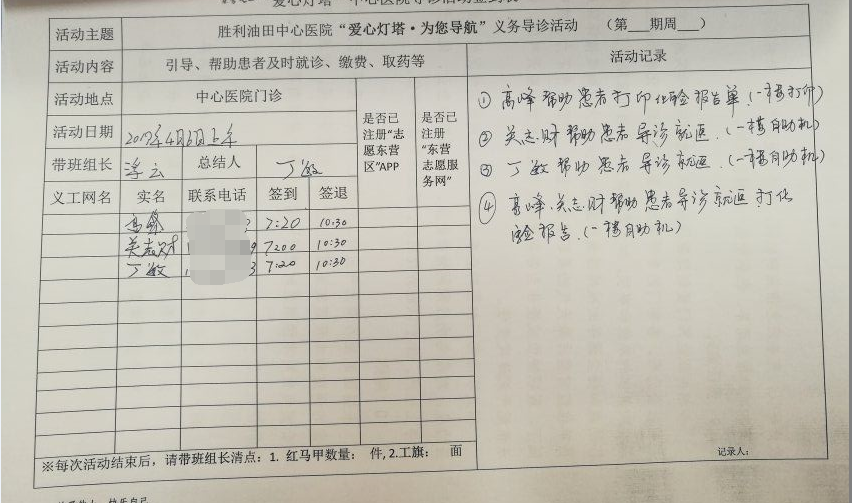 活动主题 胜利油田中心医院“爱心灯塔·为您导航”义务导诊活动 （第___期周___）
活动内容 引导、帮助患者及时就诊、缴费、取药等 活动记录
活动地点 中心医院门诊 是否已注册“志愿东营区”APP 是否已注册“东营志愿服务网”
活动日期 2017年4月6日上午
带班组长 浮云 总结人 丁敏
义工网名 实名 联系电话 签到 签退
高峰 7:20 10:30
关志财 7:00 10:30
丁敏 7:20 10:30
① 高峰帮助患者打印化验报告单.(一楼打印)
② 关志财帮助患者导诊就医.(一楼自助机)
③ 丁敏帮助患者导诊就医.(一楼自助机)
④ 高峰、关志财帮助患者导诊就医 打化
验报告.(一楼自助机)
※每次活动结束后，请带班组长清点：1. 红马甲数量： 件, 2.工旗： 面
记录人：